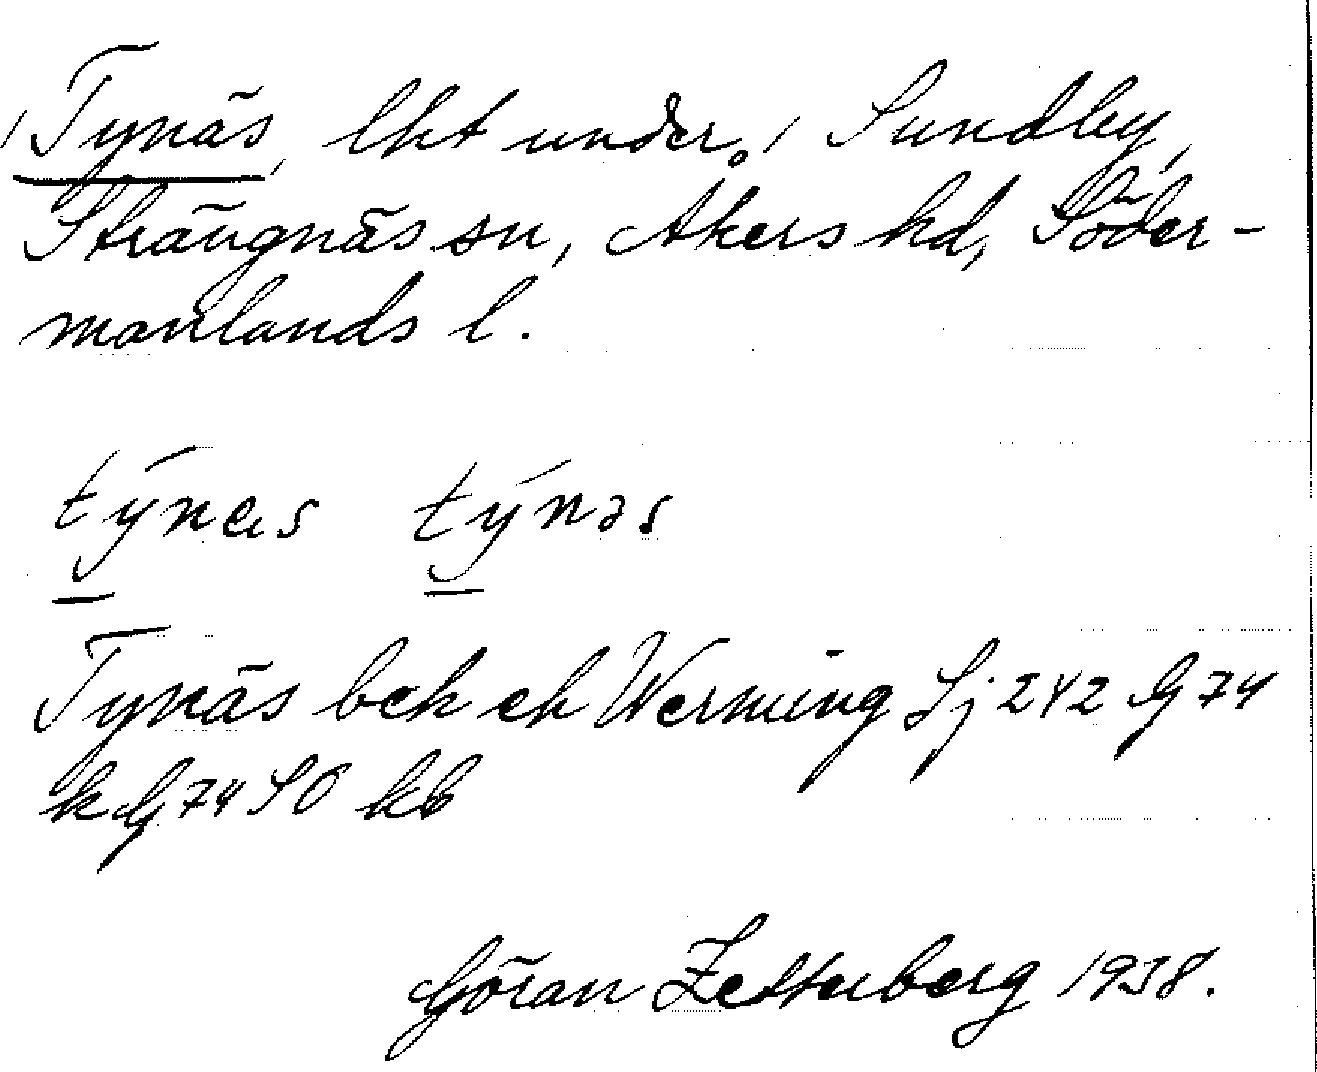 /Tynäs, lht under / Sundby,
Strängnäs sn, Åkers hd, Söder-
manlands l.
týnas týnəs
Tynäs bek eh Werming Sj 242 G 74
k G 74 SO kb
Göran Zetterberg 1938.